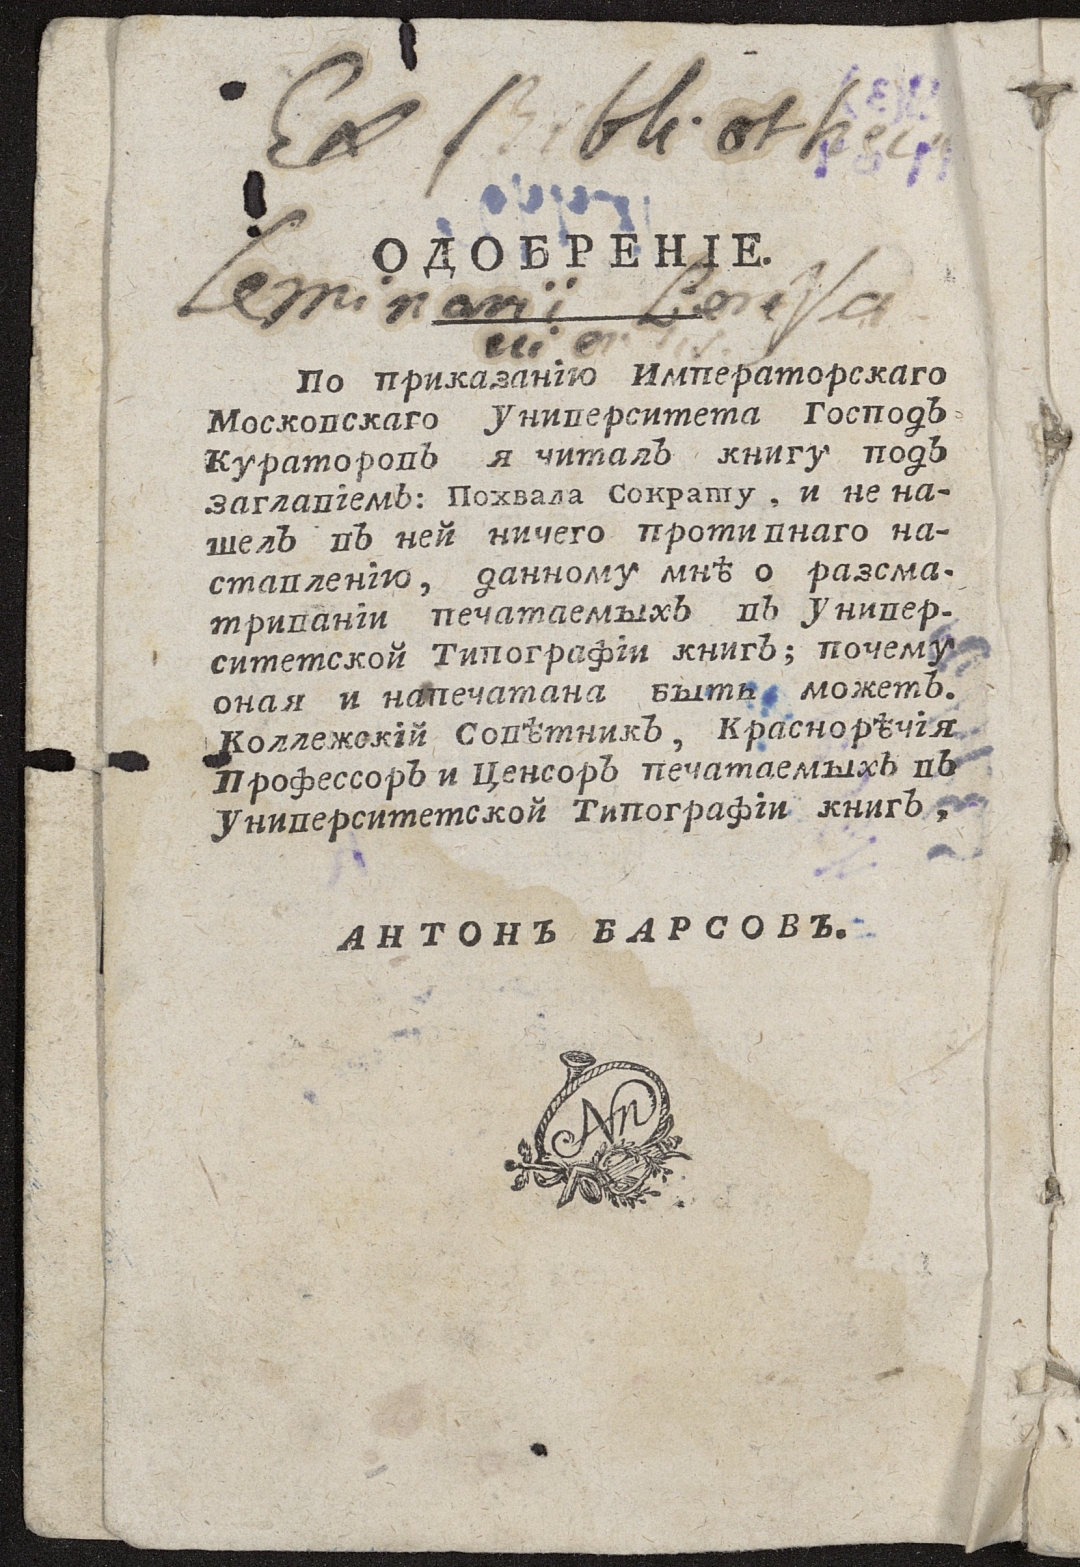 Ex Bibliotheca
ОДОБРЕНІЕ.
Seminarii
По приказанію Императорскаго
Московскаго Университета Господъ
Кураторовъ я читалъ книгу подъ
заглавіемъ: Похвала Сократу, и не на-
шелъ въ ней ничего противнаго на-
ставленію, данному мнѣ о разсма-
триваніи печатаемыхъ въ Универ-
ситетской Типографіи книгъ; почему
оная и напечатана быть можетъ.
Коллежскій Совѣтникъ, Краснорѣчія
Профессоръ и Ценсоръ печатаемыхъ въ
Университетской Типографіи книгъ,
АНТОНЪ БАРСОВЪ.